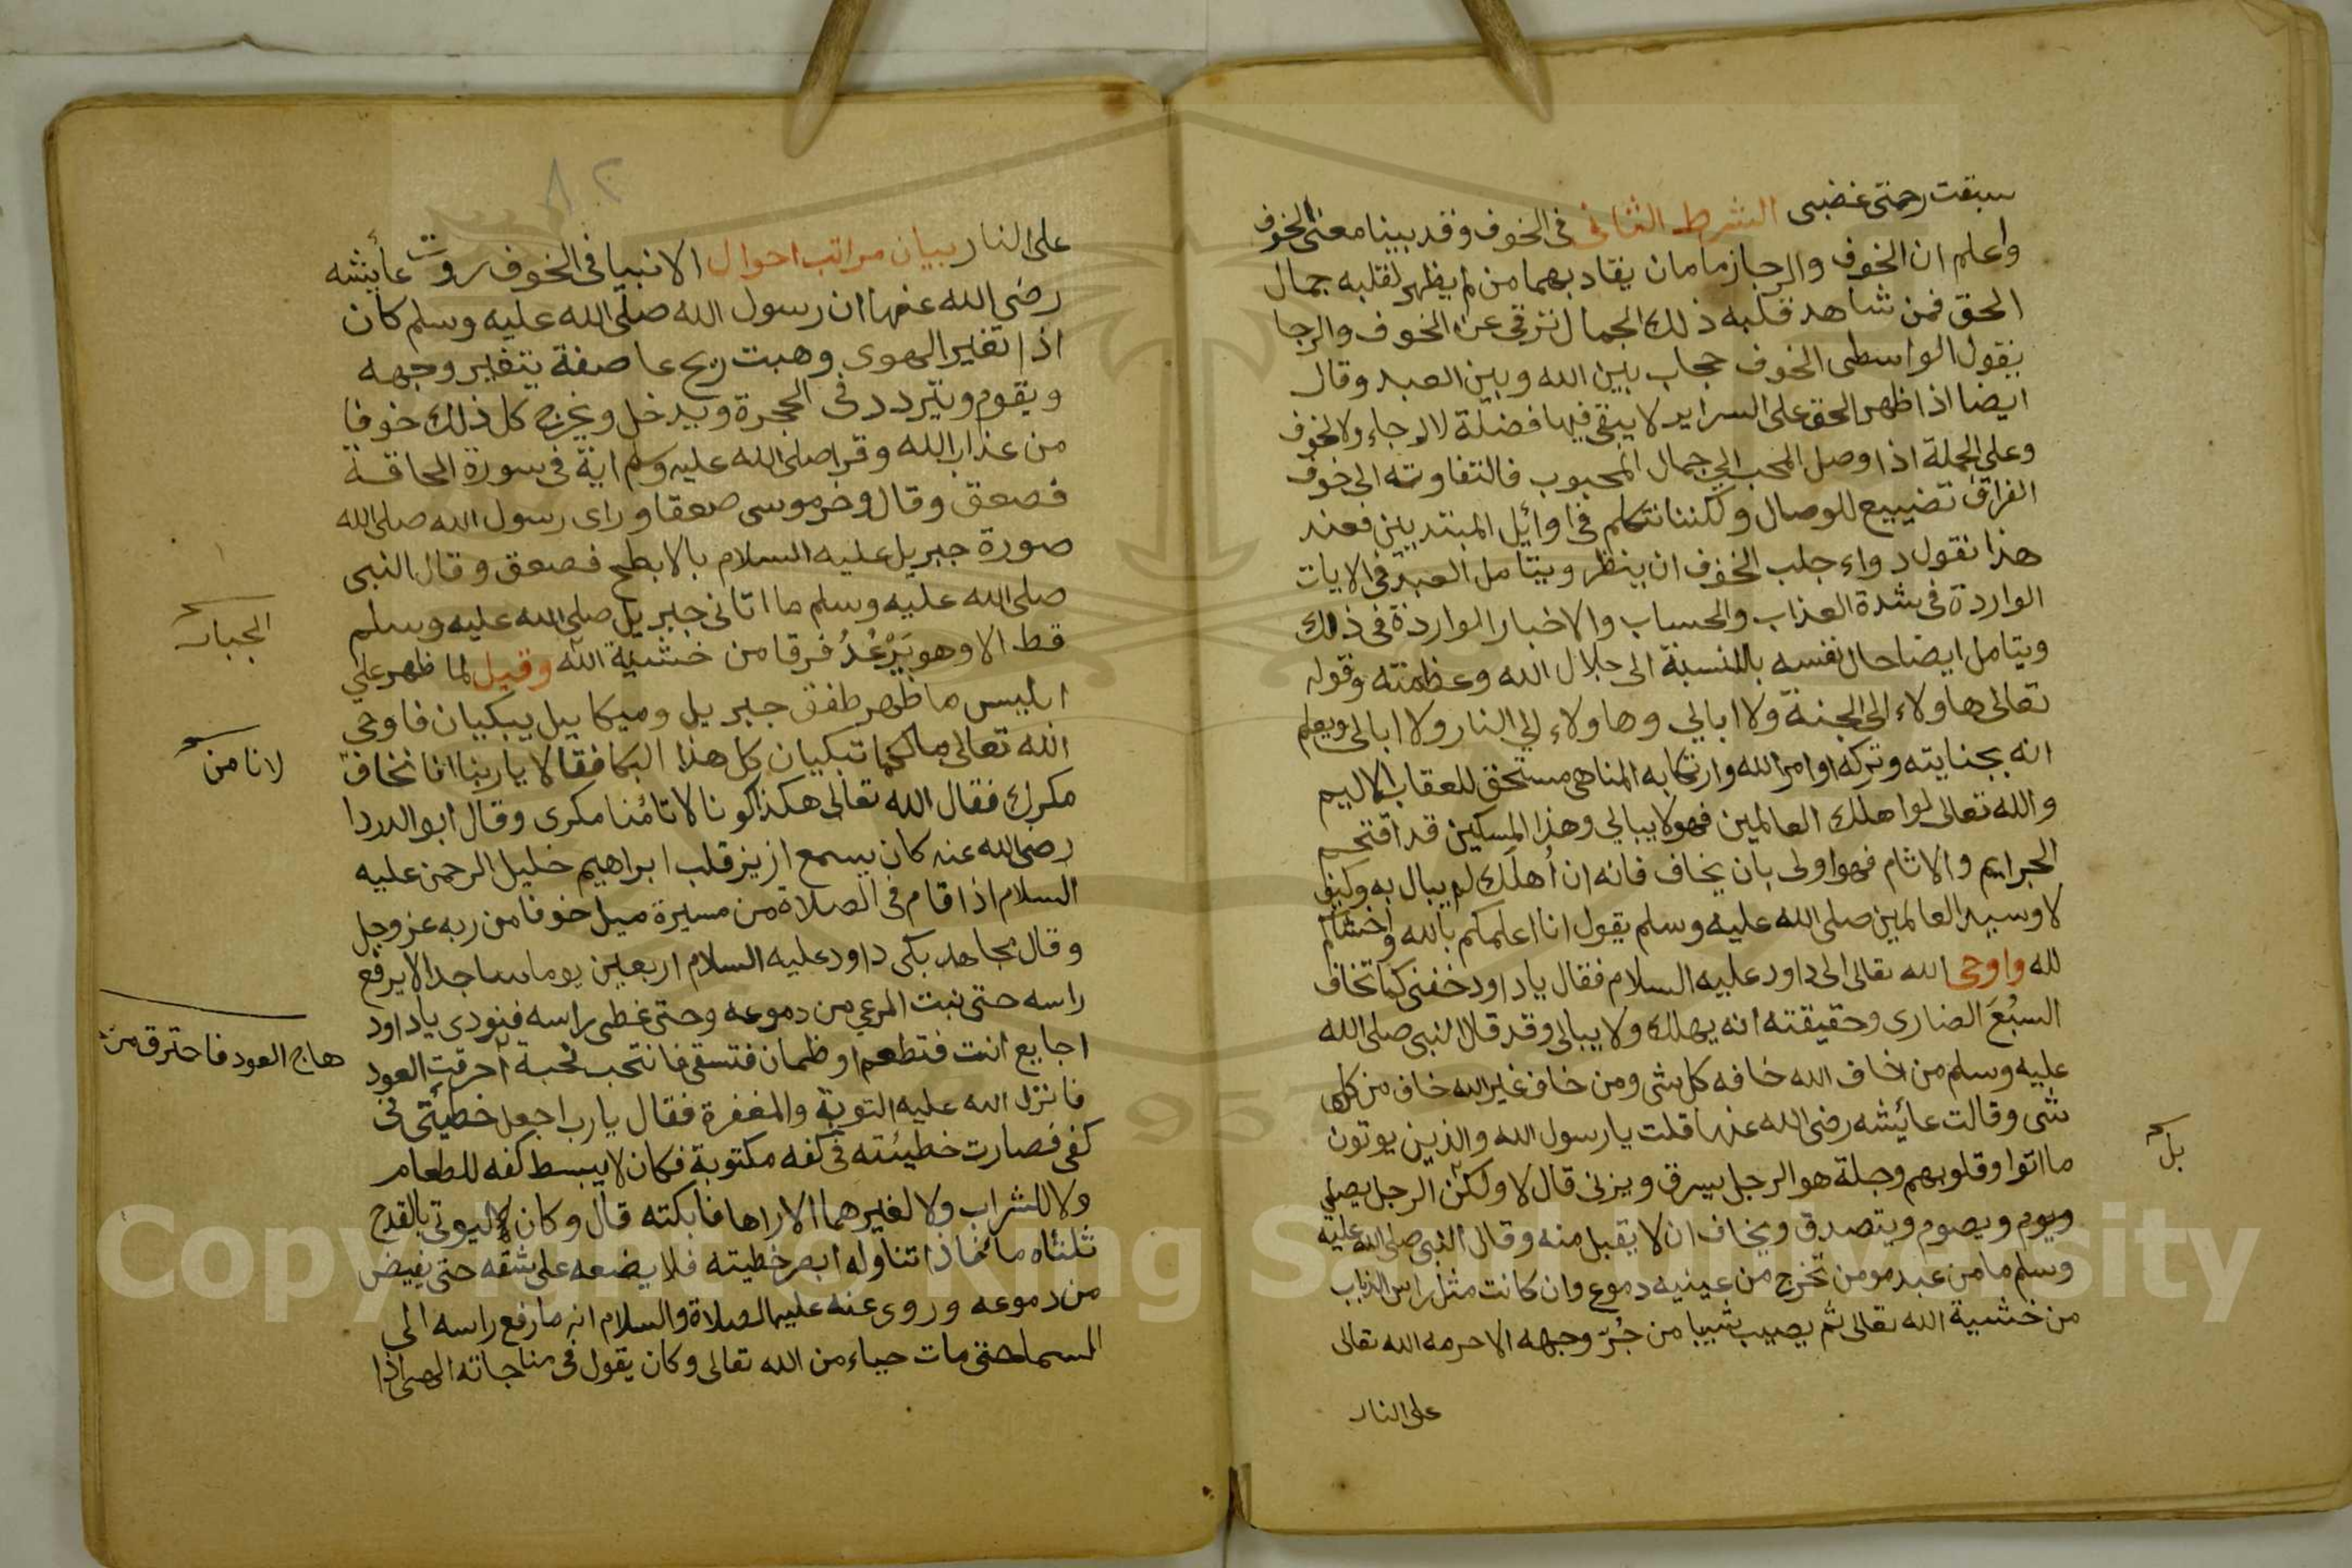 سبقت رحمتى غضبى الشرط الثانى فى الخوف وقد بينا معنى الخوف
واعلم ان الخوف والرجا زمامان يقاد بهما من لم يظهر لقلبه جمال
الحق فمن شاهد قلبه ذلك الجمال ترقى عن الخوف والرجا
بقول الواسطى الخوف حجاب بين الله وبين العبد وقال
ايضا اذا ظهر الحق على السراير لا يبقى فيها فضلة لا لرجاء ولا لخوف
وعلى الجملة اذا وصل المحب الى جمال المحبوب فالتفاوته الى خوف
الفراق تضييع للوصال ولكننا نتكلم فى اوائل المبتديين فعند
هذا نقول دواء جلب الخوف ان ينظر ويتامل العبد فى الايات
الواردة فى شدة العذاب والحساب والاخبار الواردة فى ذلك
ويتامل ايضا حال نفسه بالنسبة الى جلال الله وعظمته وقوله
تعالى هاولاء الى الجنة ولا ابالي وهاولاء الي النار ولا ابالى ويعلم
انه بجنايته وتركه اوامر الله وارتكابه المناهى مستحق للعقاب الاليم
والله تعالى لو اهلك العالمين فهو لا يبالي وهذا المسكين قد اقتحم
الجرايم والاثام فهو اولى بان يخاف فانه ان أهلك لم يبال به وكيف
لا وسيد العالمين صلى الله عليه وسلم يقول انا اعلمكم بالله واخشاكم
لله واوحى الله تعالى الى داود عليه السلام فقال ياداود خفنى كما تخاف
السبُعَ الضارى وحقيقته انه يهلك ولا يبالى وقد قال النبى صلى الله
عليه وسلم من خاف الله خافه كل شى ومن خاف غير الله خاف من كل
شى وقالت عائشه رضى الله عنها قلت يارسول الله والذين يوتون
ما اتوا وقلوبهم وجلة هو الرجل يسرق ويزنى قال لا ولكن الرجل يصلي
ويصوم ويتصدق ويخاف ان لا يقبل منه وقال النبى صلى الله عليه
وسلم ما من عبد مومن تخرج من عينيه دموع وان كانت مثل راس الذباب
من خشية الله تعالى ثم يصيب شيبا من حُرّ وجهه الا حرمه الله تعالى
على النار
بل
على النار بيان مراتب احوال الانبيا فى الخوف روت عائشه
رضى الله عنها ان رسول الله صلى الله عليه وسلم كان
اذا تغير الهوى وهبت ريح عاصفة يتغير وجهه
ويقوم ويتردد فى الحجرة ويدخل ويخرج كل ذلك خوفا
من عذاب الله وقرا صلى الله عليه وسلم اية فى سورة الحاقة
فصعق وقال وخر موسى صعقا وراى رسول الله صلى الله
صورة جبريل عليه السلام بالابطح فصعق وقال النبى
صلى الله عليه وسلم ما اتانى جبريل صلى الله عليه وسلم
قط الا وهو يَرْعُدُ فرقا من خشية الله وقيل لما ظهر على
ابليس ما ظهر طفق جبريل وميكاييل يبكيان فاوحى
الله تعالى مالكما تبكيان كل هذا البكا فقالا ياربنا انا نخاف
مكرك فقال الله تعالى هكذا كونا لا تامنا مكرى وقال ابو الدردا
رضى الله عنه كان يسمع ازيز قلب ابراهيم خليل الرحمن عليه
السلام اذا قام فى الصلاة من مسيرة ميل خوفا من ربه عز وجل
وقال مجاهد بكى داود عليه السلام اربعين يوما ساجدا لا يرفع
راسه حتى نبت المرعي من دموعه وحتى غطى راسه فنودى ياداود
اجايع انت فتطعم او ظمان فتسقى فانتحب نحبة احرقت العود
فانزل الله عليه التوبة والمغفرة فقال يارب اجعل خطيئتى فى
كفى فصارت خطيئته فى كفه مكتوبة فكان لا يبسط كفه للطعام
ولا للشراب ولا لغيرهما الا راها فابكته قال وكان ليوتى بالقدح
ثلثاه ما فاذا تناوله ابصر خطيته فلا يضعه على شقه حتى يفيض
من دموعه وروى عنه عليه الصلاة والسلام انه ما رفع راسه الى
السما حتى مات حياء من الله تعالى وكان يقول فى مناجاته الهى اذا
الجبار
لا نامن
هاج العود فاحترق من
Copyright © King Saud University